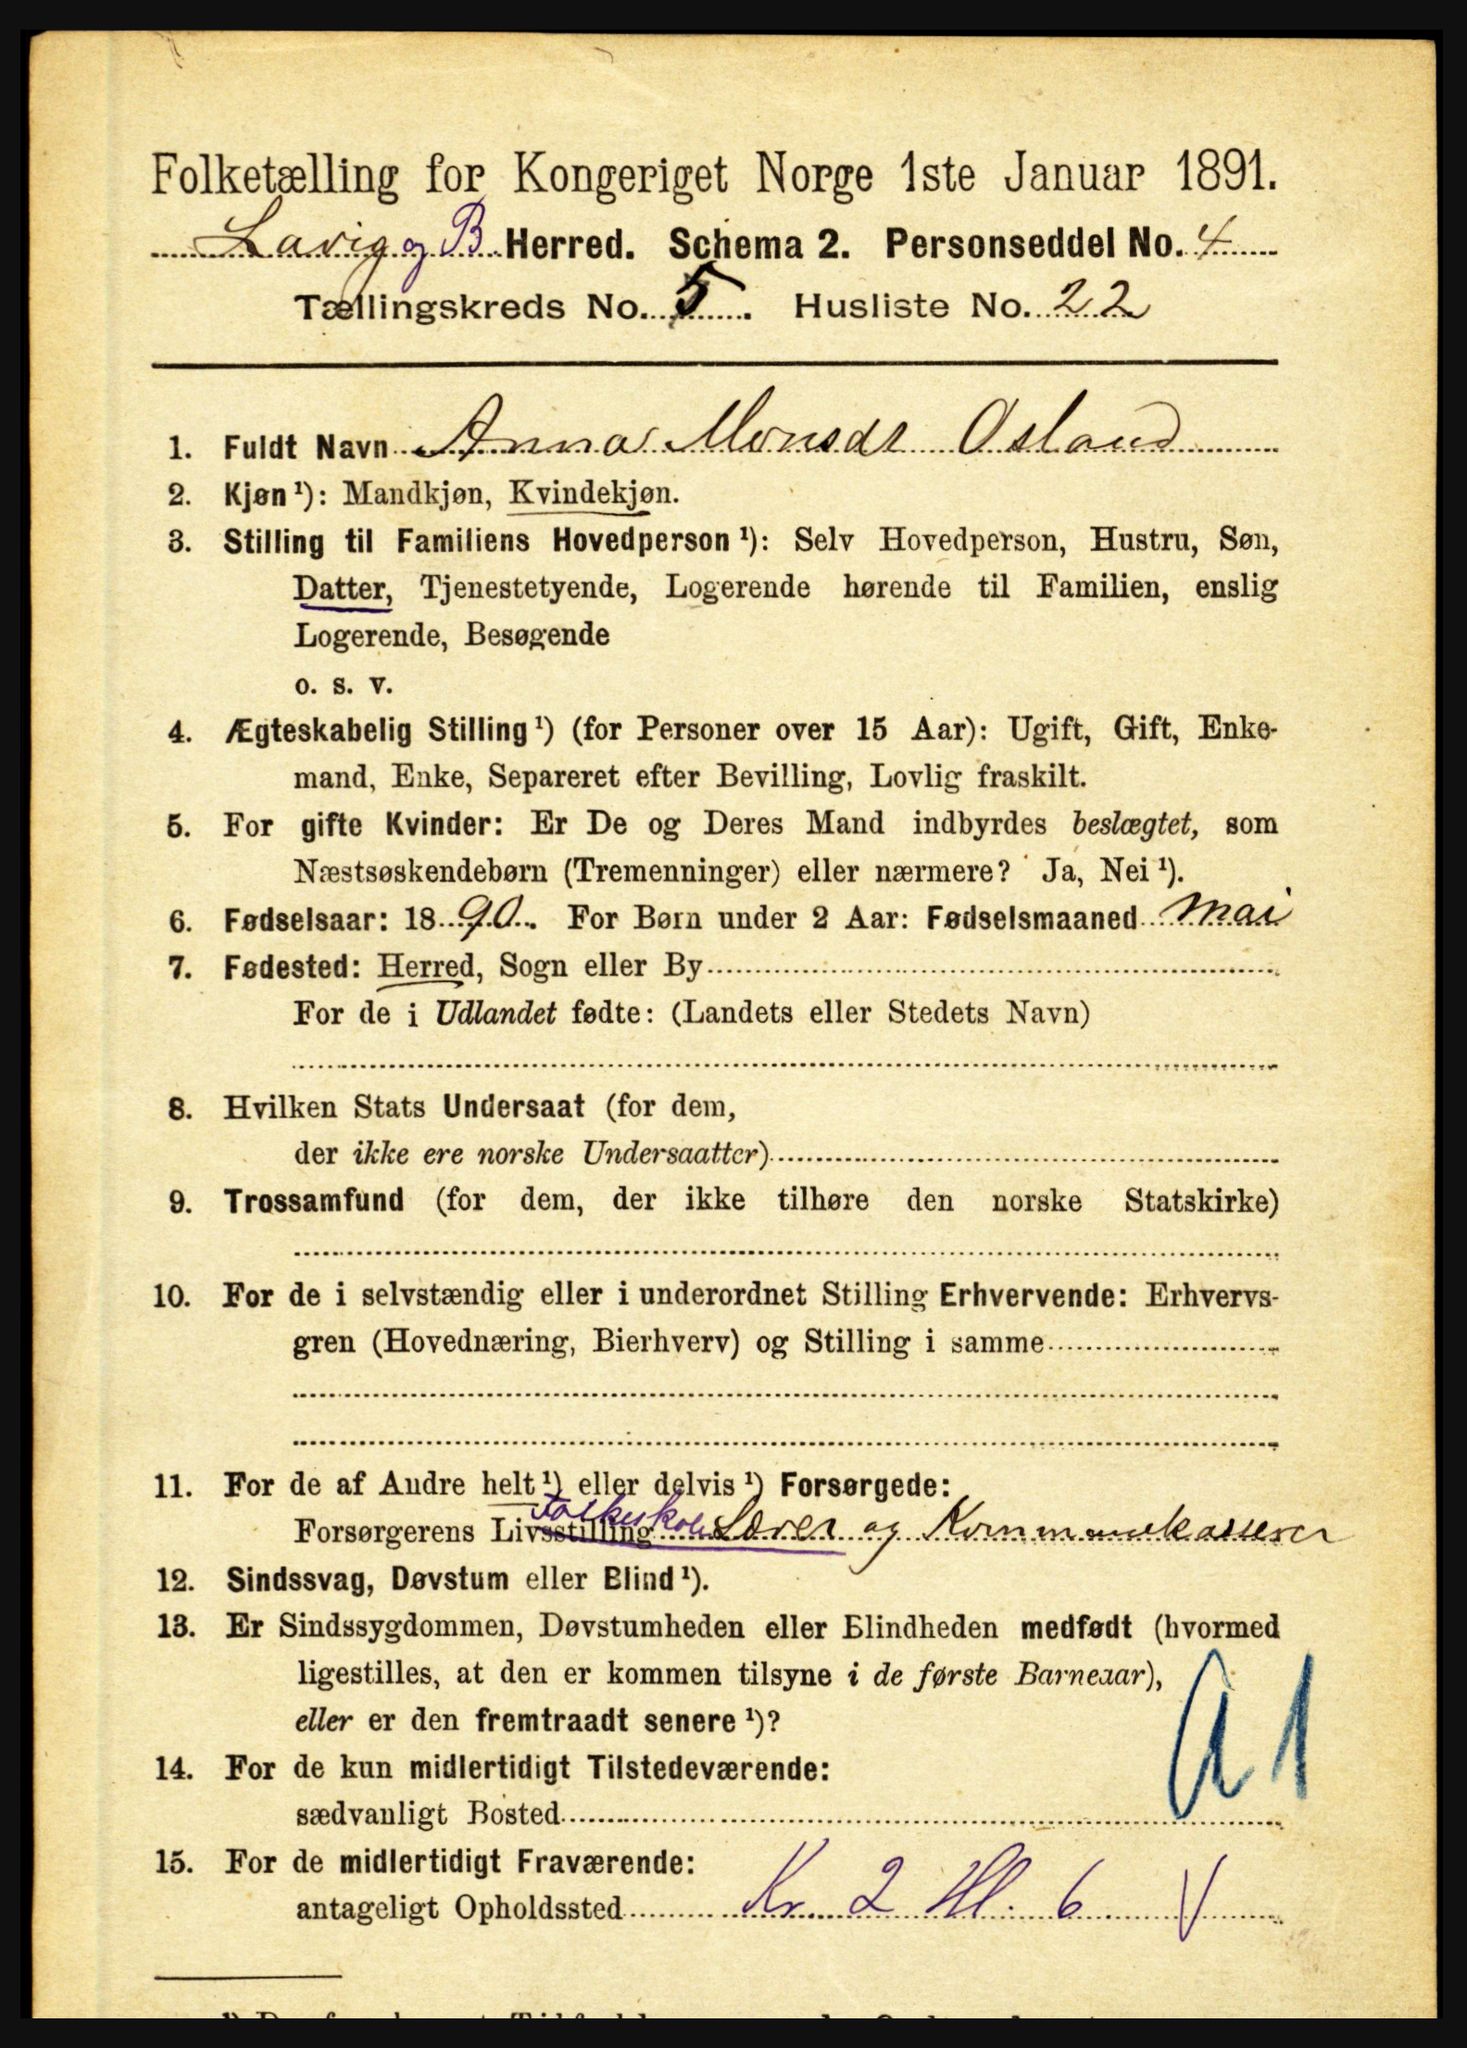 Folketælling for Kongeriget Norge 1ste Januar 1891.
Lavig og B Herred. Schema 2. Personseddel No. 4
Tællingskreds No. 5. Husliste No. 22
1. Fuldt Navn Anna Monsdr Osland
2. Kjøn ¹): Mandkjøn, Kvindekjøn.
3. Stilling til Familiens Hovedperson ¹): Selv Hovedperson, Hustru, Søn,
Datter, Tjenestetyende, Logerende hørende til Familien, enslig
Logerende, Besøgende
o. s. v.
4. Ægteskabelig Stilling ¹) (for Personer over 15 Aar): Ugift, Gift, Enke-
mand, Enke, Separeret efter Bevilling, Lovlig fraskilt.
5. For gifte Kvinder: Er De og Deres Mand indbyrdes beslægtet, som
Næstsøskendebørn (Tremenninger) eller nærmere? Ja, Nei ¹).
6. Fødselsaar: 1890. For Børn under 2 Aar: Fødselsmaaned mai
7. Fødested: Herred, Sogn eller By
For de i Udlandet fødte: (Landets eller Stedets Navn)
8. Hvilken Stats Undersaat (for dem,
der ikke ere norske Undersaatter)
9. Trossamfund (for dem, der ikke tilhøre den norske Statskirke)
10. For de i selvstændig eller i underordnet Stilling Erhvervende: Erhvervs-
gren (Hovednæring, Bierhverv) og Stilling i samme
11. For de af Andre helt ¹) eller delvis ¹) Forsørgede:
Forsørgerens Livsstilling Folkeskole Lærer og Kommunekasserer
12. Sindssvag, Døvstum eller Blind ¹).
13. Er Sindssygdommen, Døvstumheden eller Blindheden medfødt (hvormed
ligestilles, at den er kommen tilsyne i de første Barneaar),
eller er den fremtraadt senere ¹)?
a 1
14. For de kun midlertidigt Tilstedeværende:
sædvanligt Bosted
15. For de midlertidigt Fraværende:
antageligt Opholdssted Kr. 2 Hl. 6 V